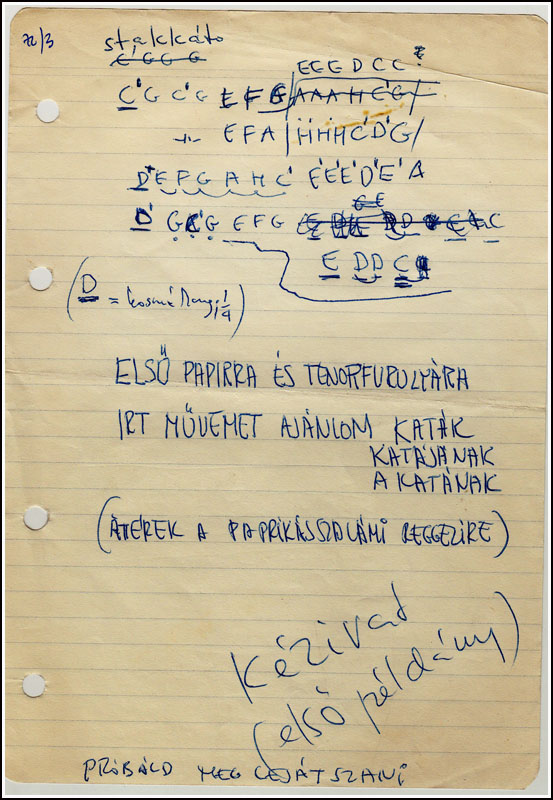 72/3
stakkáto
E G G G
E E E D C C
C' G C' G E F G / A A A H C' G /
E F A / H H H C' D' G /
D' E F G A H C' E' E' E' D' E' A
D' G C G E F G
E D D C
(D = kosmé hang, 1/4)
ELSŐ PAPIRRA ÉS TENORFURULYÁRA
IRT MŰVEMET AJÁNLOM KATÁK
KATÁJÁNAK
A KATÁNAK
(ÁTÉREK A PAPRIKÁSSZALÁMI REGGELIRE)
Kézirat
(első példány)
PRÓBÁLD MEG LEJÁTSZANI